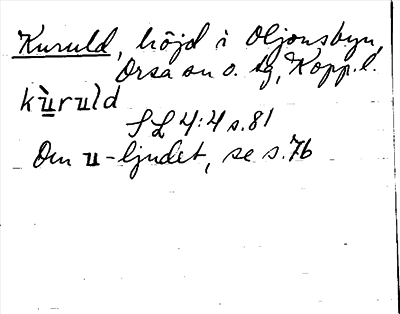 Kuruld, höjd i Oljonsbyn,
Orsa sn o. tg, Kopp. l.
kùruld
SL 4:4 s. 81
Om u-ljudet, se s. 76